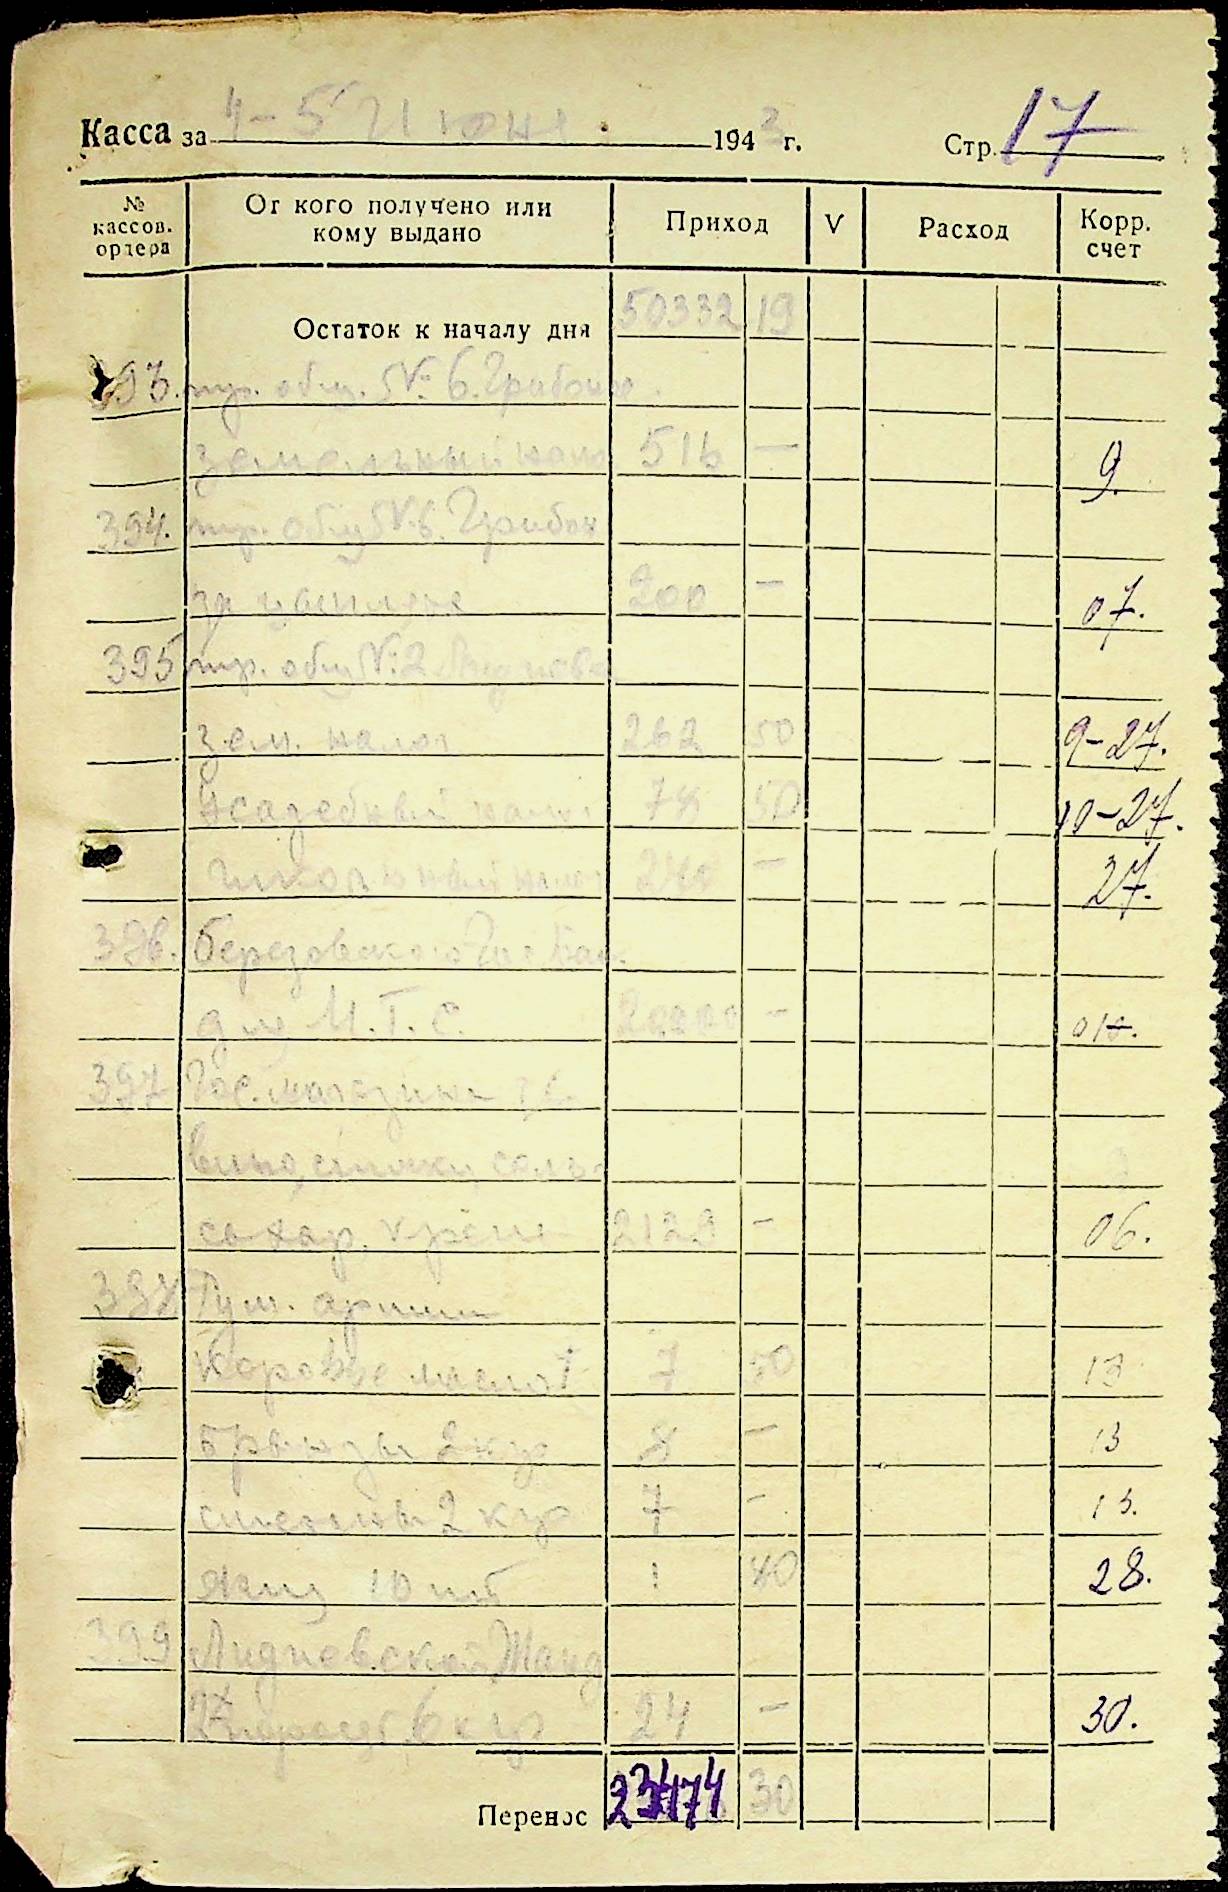 Касса за 4-5 Июня 1943 г. Стр. 17
№ кассов. ордера От кого получено или кому выдано Приход V Расход Корр. счет
Остаток к началу дня 50332 19
393. пр. общ. №: 6. Грабово.
земельный налог 516 — 9.
394. пр. общ №. 6. Грабов
200 — 07.
395 пр. общ №: 2
зем. налог 262 50 9-27.
Усадебный налог 78 50 10-27.
налог 240 — 27.
396. Березовского Гос Бан
для М. Т. С. 20000 —
397 Гос. магазина за
вино, спички, соль
сахар, 2129 — 06.
398 Рум. армии
Коровье масло 1 7 50 13
Брынзы 2 кгр 8 — 13
сметаны 2 кгр 7 - 13.
Яиц 10 шт 1 80 28.
399 Лидиевской Жанд
6 кгр 24 — 30.
Перенос 23474 30